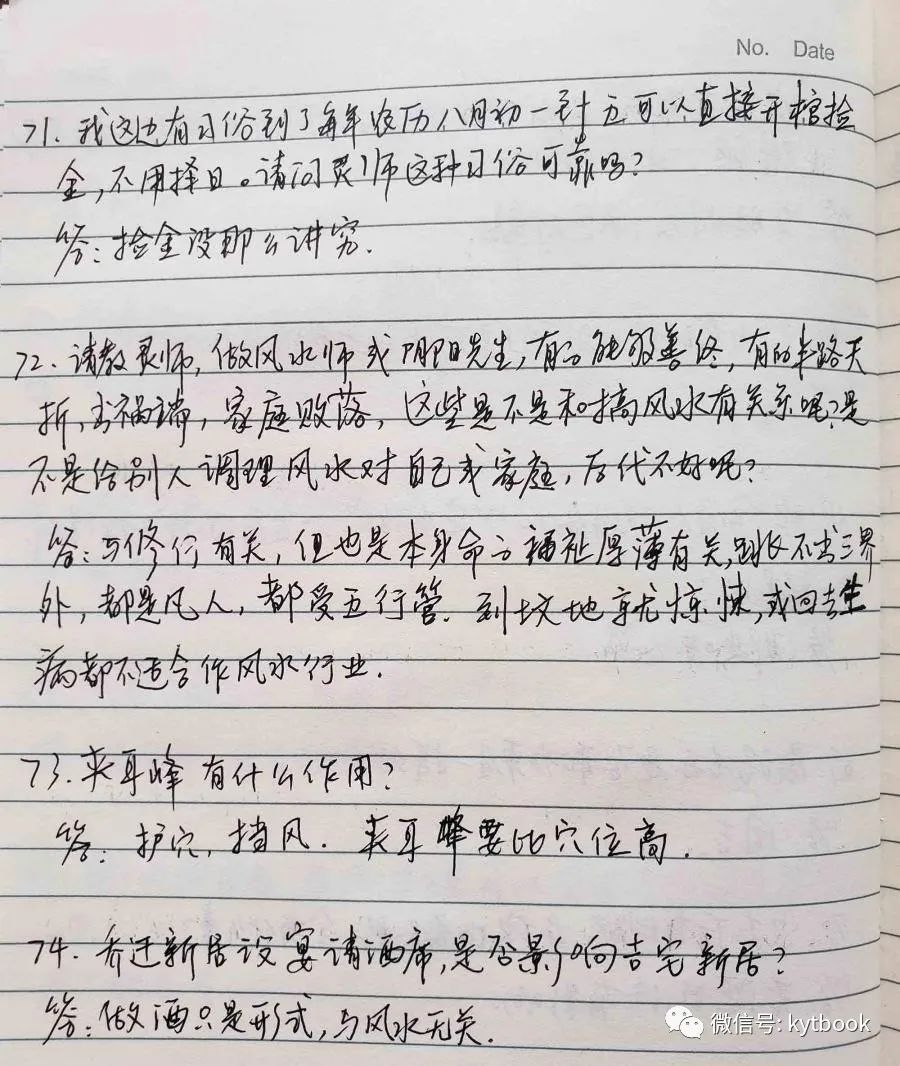 No. Date
71. 我这边有习俗到了每年农历八月初一到十五可以直接开棺捡
金,不用择日。请问灵师这种习俗可靠吗?
答:捡金没那么讲究.
72. 请教灵师,做风水师或阴阳先生,有的能够善终,有的半路夭
折,出祸端,家庭败落,这些是不是和搞风水有关系呢?是
不是给别人调理风水对自己或家庭,后代不好呢?
答:与修行有关,但也是本身命方福祉厚薄有关,跳不出三界
外,都是凡人,都受五行管.到坟地就惊悚,或回去生
病都不适合作风水行业.
73. 夹耳峰有什么作用?
答:护穴,挡风.夹耳峰要比穴位高.
74. 乔迁新居设宴请酒席,是否影响吉宅新居?
答:做酒只是形式,与风水无关.
微信号: kytbook